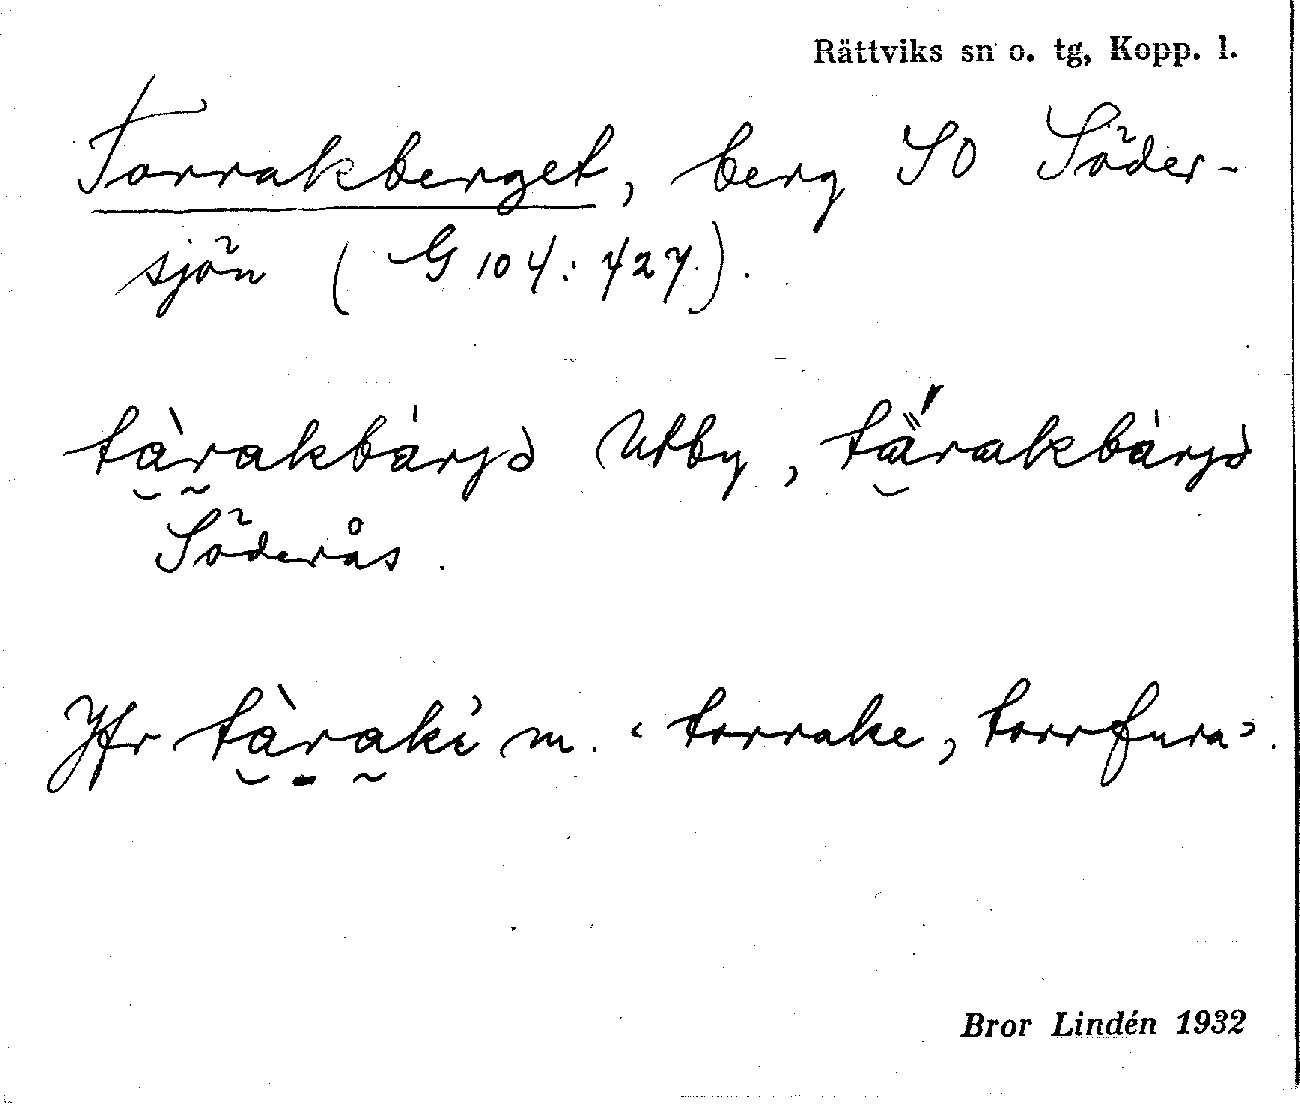 Rättviks sn o. tg, Kopp. l.
Torrakberget, berg SO Söder-
sjön (G 104: 427).
tàrakbárjə̀ Utby, tä́rakbárjə̀
Söderås.
Jfr tàraki̇̀ m. ‹torrake, torrfura›.
Bror Lindén 1932